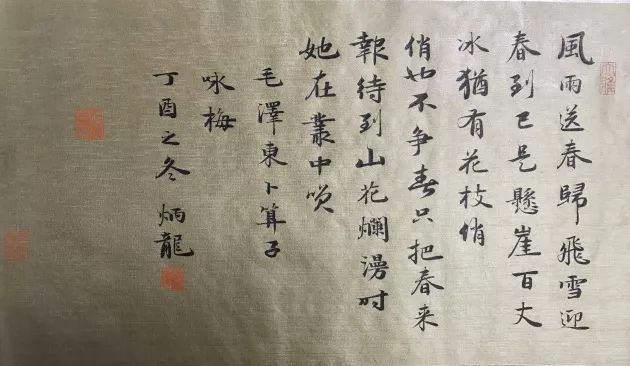 風雨送春歸飛雪迎
春到已是懸崖百丈
冰猶有花枝俏
俏也不争春只把春来
報待到山花爛漫时
她在叢中笑
毛澤東卜算子
咏梅
丁酉之冬 炳龍